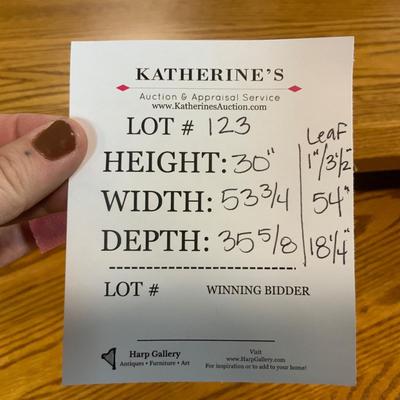 KATHERINE'S
Auction & Appraisal Service
www.KatherinesAuction.com
LOT # 123
Leaf
HEIGHT: 30" 1"/3 1/2"
WIDTH: 53 3/4 54"
DEPTH: 35 5/8 18 1/4"
LOT # WINNING BIDDER
Harp Gallery
Antiques • Furniture • Art
Visit
www.HarpGallery.com
For inspiration or to add to your home!